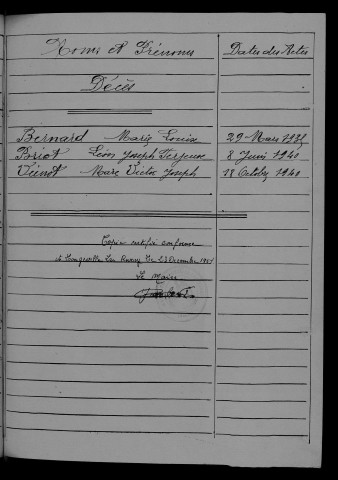 Noms et Prénoms Dates des Actes
Décès
Bernard Marie Louis 29 Mars
Briot Léon Joseph Ferjeux 8 Juin 1940
Viénot Marc Victor Joseph 18 Octobre 1940
Copie certifié conforme
à Longeville le 23 Décembre
Le Maire